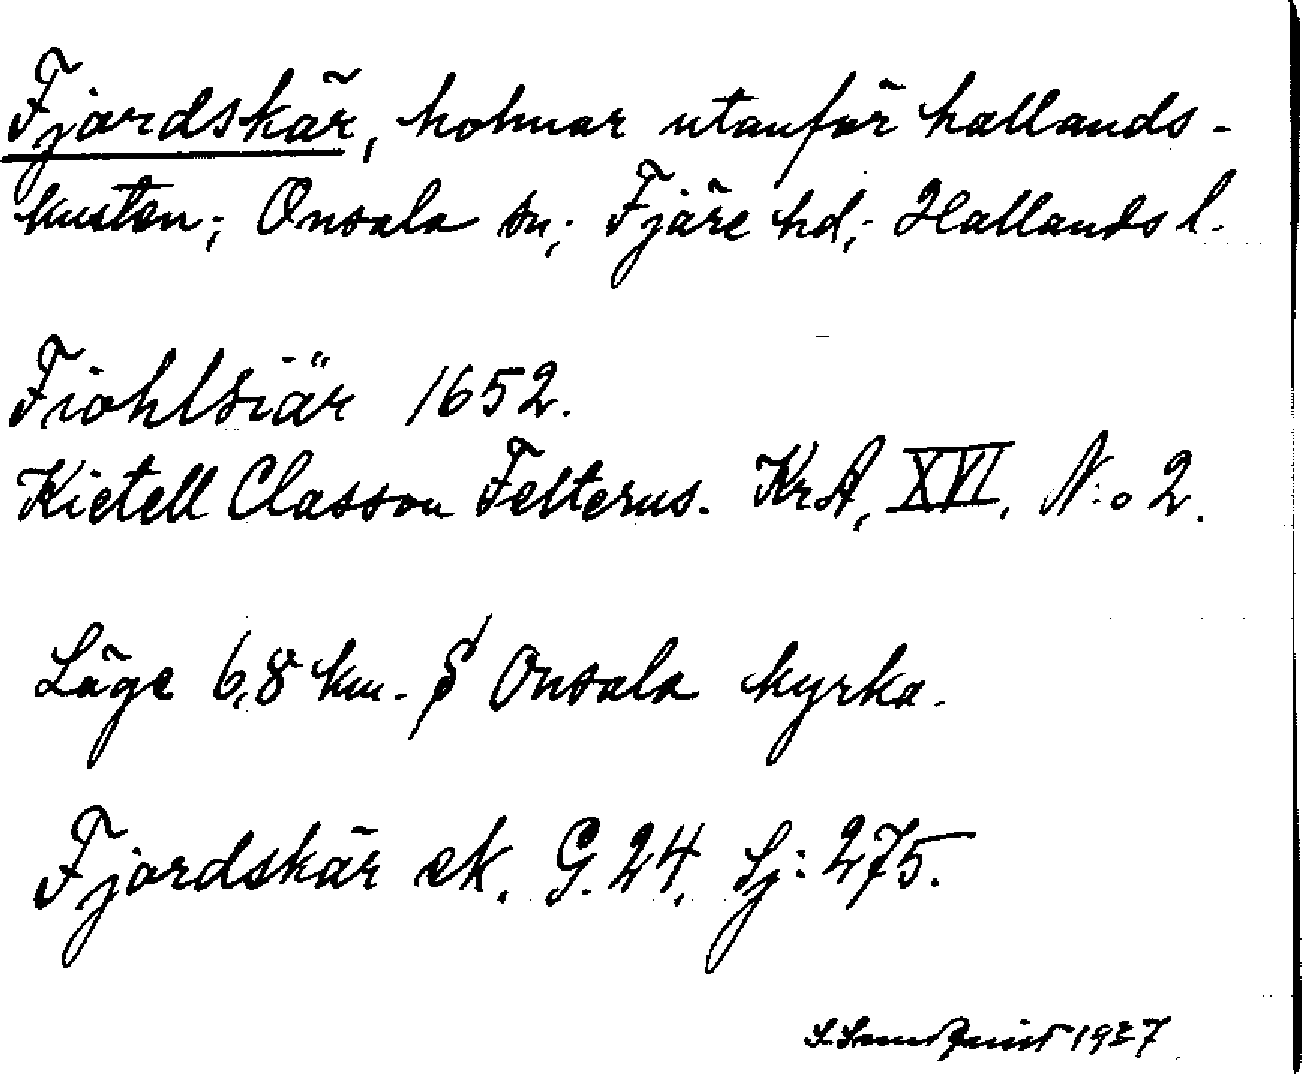 Fjordskär, holmar utanför hallands-
kusten; Onsala sn; Fjäre hd; Hallands l.
Fiohlsiär 1652.
Kietell Classon Felterus. KrA, XVI, N:o 2.
Läge 6,8 km. S Onsala kyrka.
Fjordskär ek. G. 24. Sj: 275.
1927